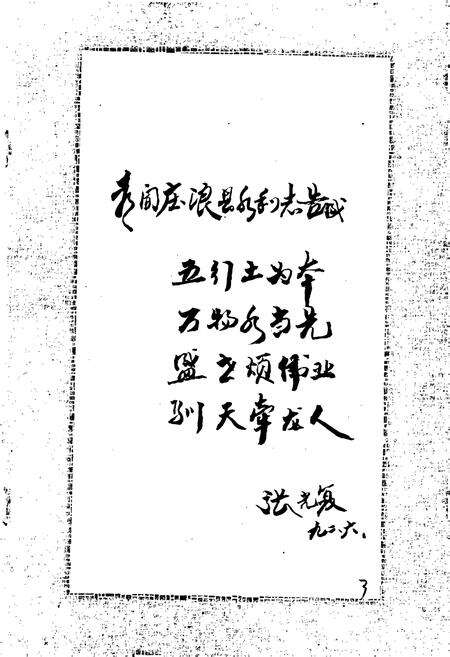 喜闻庄浪县水利志告成
五行土为本
万物水当先
盛世颂伟业
驯天牵龙人
张光复
九二·六.
3